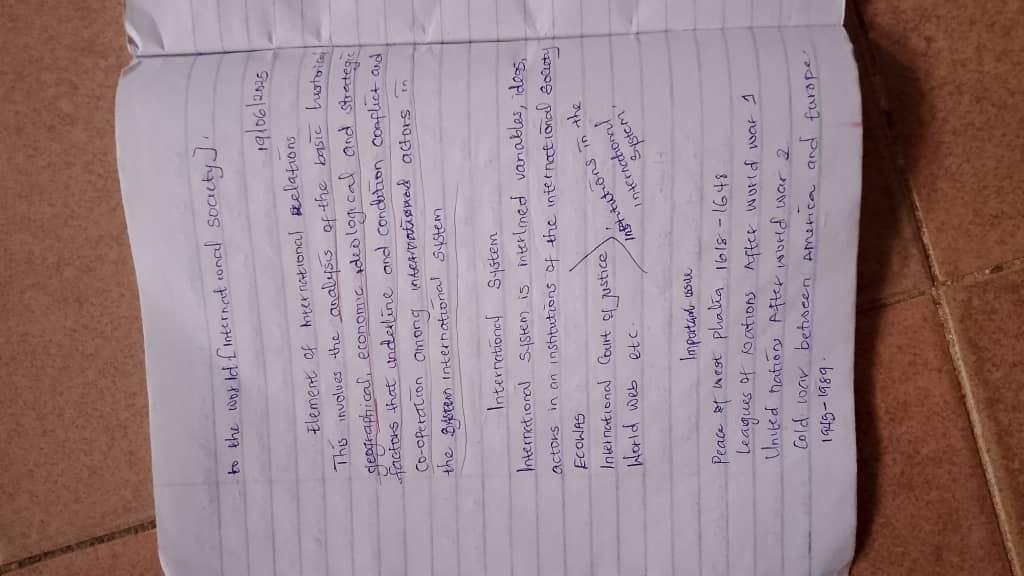 to the world [international society].
19/06/2025
Element of International Relations
This involves the analysis of the basic historical
geographical, economic ideological and strategic
factors that underline and condition conflict and
Co-operation among international actors in
the system international system
International System
International System is interlined variables, ideas,
actors in an institutions of the international society
ECOWAS
International Court of justice } institutions in the international system.
World web etc.
Important wars
Peace of west phalia 1618-1648
Leagues of Nations After world war 1
United nations After world war 2
Cold war between America and Europe.
1945-1989.